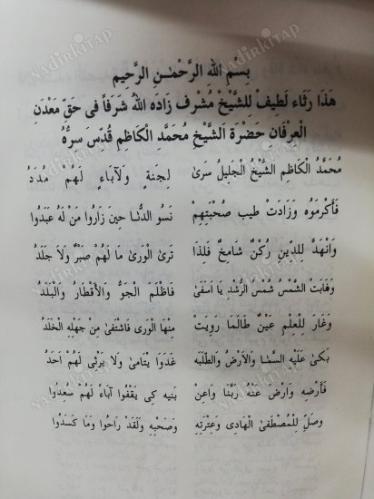 بِسْمِ اللهِ الرَّحْمٰنِ الرَّحِيمِ
هَذَا رِثَاءٌ لَطِيفٌ لِلشَّيْخْ مُشْرِفْ زَادَهُ اللهُ شَرَفًا فِى حَقِّ مَعْدَنِ
الْعِرْفَانِ حَضْرَةِ الشَّيْخِ مُحَمَّدْ الْكَاظِمِ قُدِّسَ سِرُّهُ
مُحَمَّدُ الْكَاظِمِ الشَّيْخُ الْجَلِيلُ سَرَىٰ لِجَنَّةٍ وَلَآبَاءٍ لَهُمْ مُدَدُ
فَأَكْرَمُوهُ وَزَادَتْ طِيبِ صُحْبَتِهِمْ نَسُو الدُّنَا حِينَ زَارُوا مَنْ لَهُ عَبَدُوا
وَانْهَدَّ لِلدِّينِ رُكْنٌ شَامِخٌ فَلِذَا تَرَىٰ الْوَرَىٰ مَا لَهُمْ صَبْرٌ وَلَا جَلَدُ
وَغَابَتْ الشَّمْسُ شَمْسُ الرُّشْدِ يَا اَسَفَىٰ فَاظْلَمَ الْجَوُّ وَالْأَقْطَارُ وَالْبَلَدُ
وَغَارَ لِلْعِلْمِ عَيْنٌ طَالَمَا رَوِيَتْ مِنْهَا الْوَرَى فَاشْتَفَىٰ مِنْ جَهْلِهِ الْخَلَدُ
بَكَىٰ عَلَيْهِ السَّمَا وَالْأَرْضُ وَالطَّلَبَه غَدَوْا يَتَامَىٰ وَلَا يَرْثِى لَهُمْ اَحَدُ
فَأَرْضِهِ وَارْضَ عَنْهُ رَبَّنَا وَاعِنْ بَنِيهِ كَى يَقْفُوا آبَاءً لَهُمْ سُعِدُوا
وَصَلِّ لِلْمُصْطَفَىٰ الْهَادِى وَعِتْرَتِهِ وَصَحْبِهِ وَلَقَدْ رَاحُوا وَمَا كَسَدُوا
NadirKitap